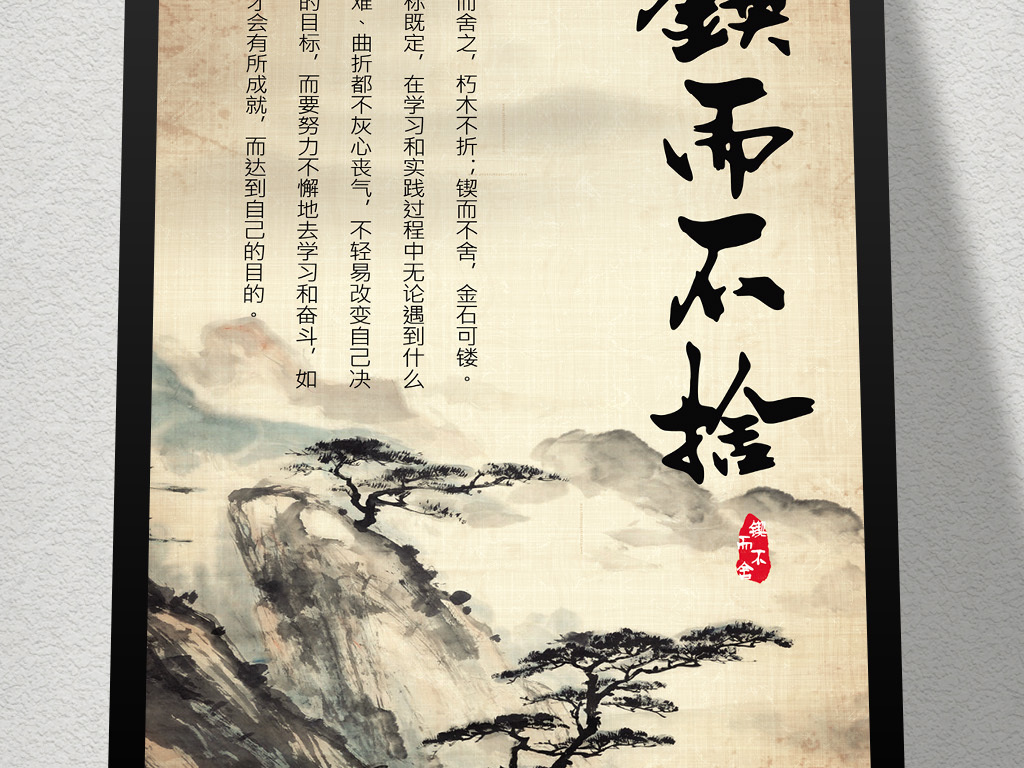 鍥而不捨
锲而不舍
而舍之，朽木不折；锲而不舍，金石可镂。
标既定，在学习和实践过程中无论遇到什么
难、曲折都不灰心丧气，不轻易改变自己决
的目标，而要努力不懈地去学习和奋斗，如
才会有所成就，而达到自己的目的。